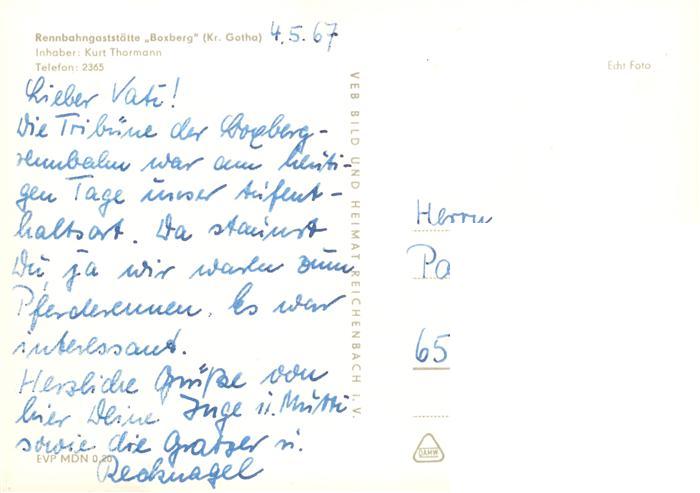 Rennbahngaststätte „Boxberg" (Kr. Gotha) 4.5.67
Inhaber: Kurt Thormann
Telefon: 2365
Echt Foto
Lieber Vati!
Die Tribüne der Boxberg-
rennbahn war am heuti-
gen Tage unser Aufent-
haltsort. Da staunst
Du, ja wir waren zum
Pferderennen. Es war
interessant.
Herzliche Grüße von
hier Deine Inge u. Mutti
sowie die Gratzer u.
Recknagel
EVP MDN 0,20
VEB BILD UND HEIMAT REICHENBACH I. V.
Herrn
Pa
65
DAMW